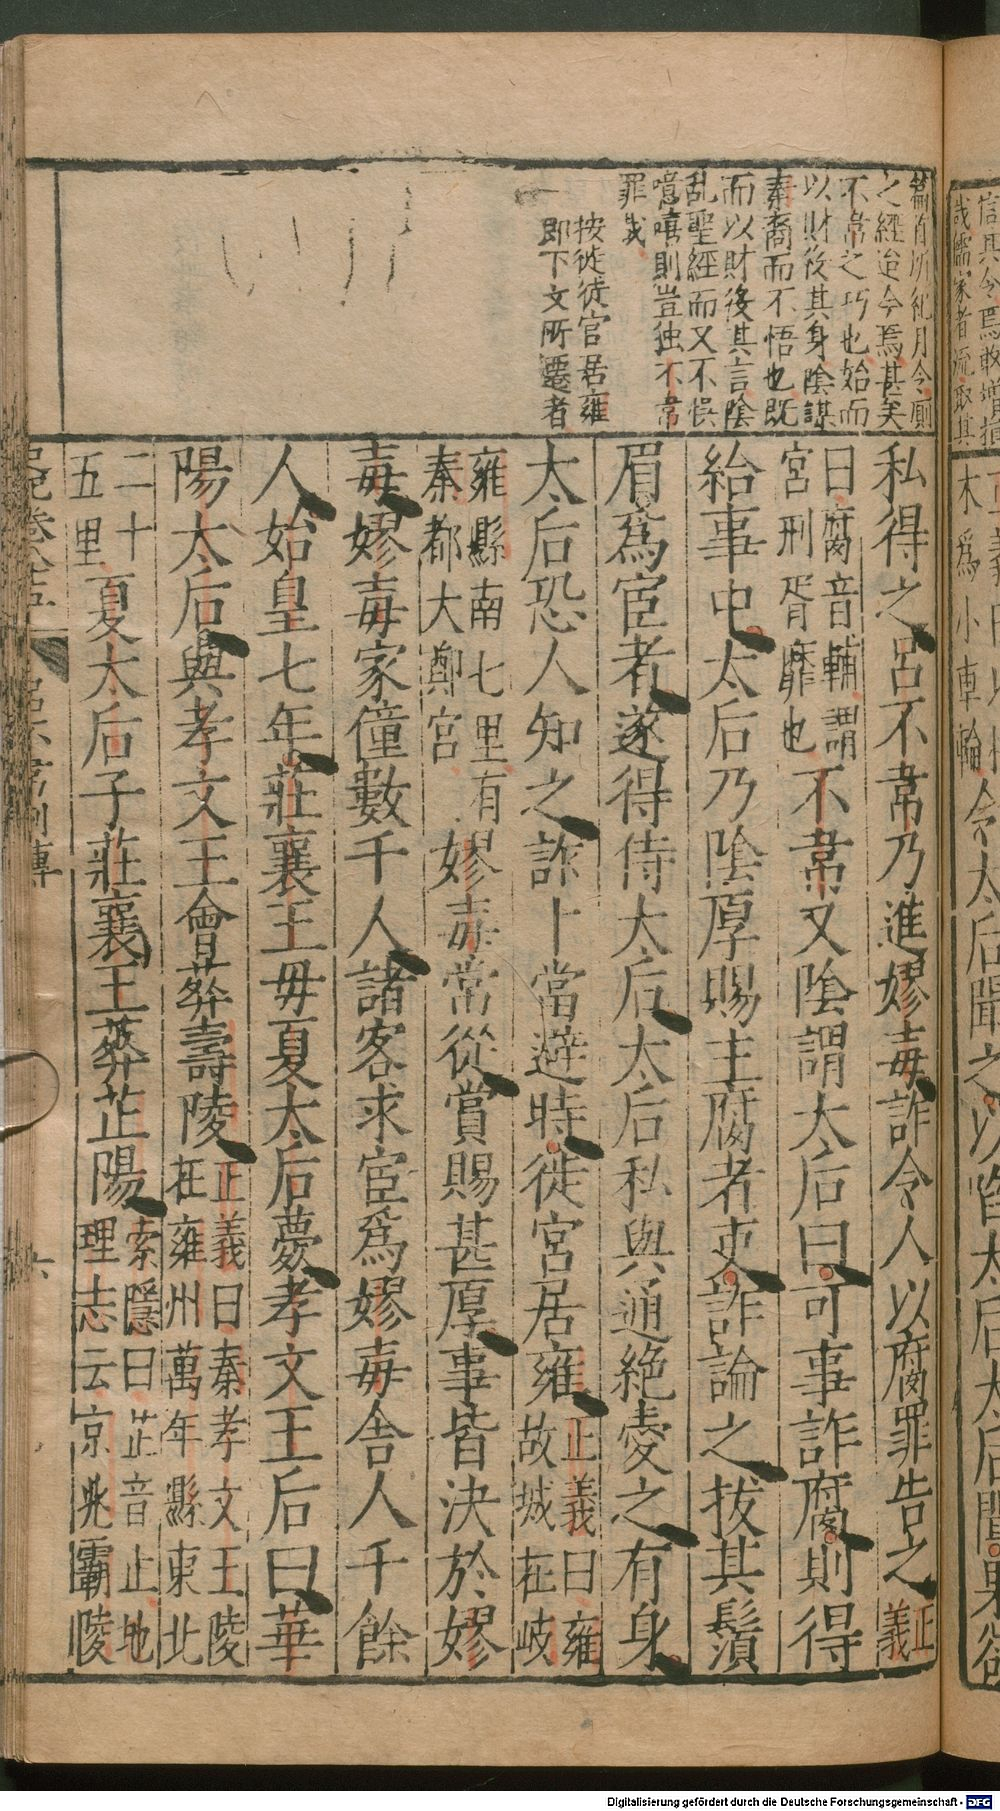 篇首所紀月令廁
之經迨今焉甚矣
不常之巧也始而
以財役其身陰謀
秦裔而不悟也既
而以財後其言陰
乱聖經而又不悞
噫嘻則豈独不韋
罪哉
按徙徙官居雍
即下文所遷者
私得之呂不韋乃進嫪毐詐令人以腐罪告之正
義
曰腐音輔謂
宮刑胥靡也
不韋又陰謂太后曰可事詐腐則得
給事中太后乃陰厚賜主腐者吏詐論之拔其鬚
眉爲宦者遂得侍太后太后私與通絕愛之有身
太后恐人知之詐卜當避時徙宮居雍
正義曰雍
故城在岐
雍縣南七里有
秦都大鄭宮
嫪毐常從賞賜甚厚事皆決於嫪
毐嫪毐家僮數千人諸客求宦爲嫪毐舍人千餘
人始皇七年莊襄王毋夏太后薨孝文王后曰華
陽太后與孝文王會葬壽陵
正義曰秦孝文王陵
在雍州萬年縣東北
二十
五里
夏太后子莊襄王葬芷陽
索隱曰芷音止地
理志云京兆霸陵
呂不韋列傳
六
令太后聞之以啗太后太后聞果欲
木爲小車輪
Digitalisierung gefördert durch die Deutsche Forschungsgemeinschaft - DFG